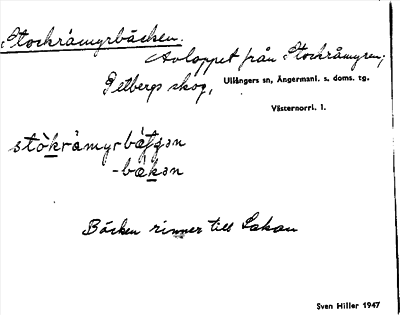 Stockråmyrbäcken.
Avloppet från Stockråmyren,
Petbergs skog, Ullångers sn, Ångermanl. s. doms. tg.
Västernorrl. l.
stòkråmyrbä̀ʃqən
-bækən
Bäcken rinner till Sakan
Sven Hiller 1947